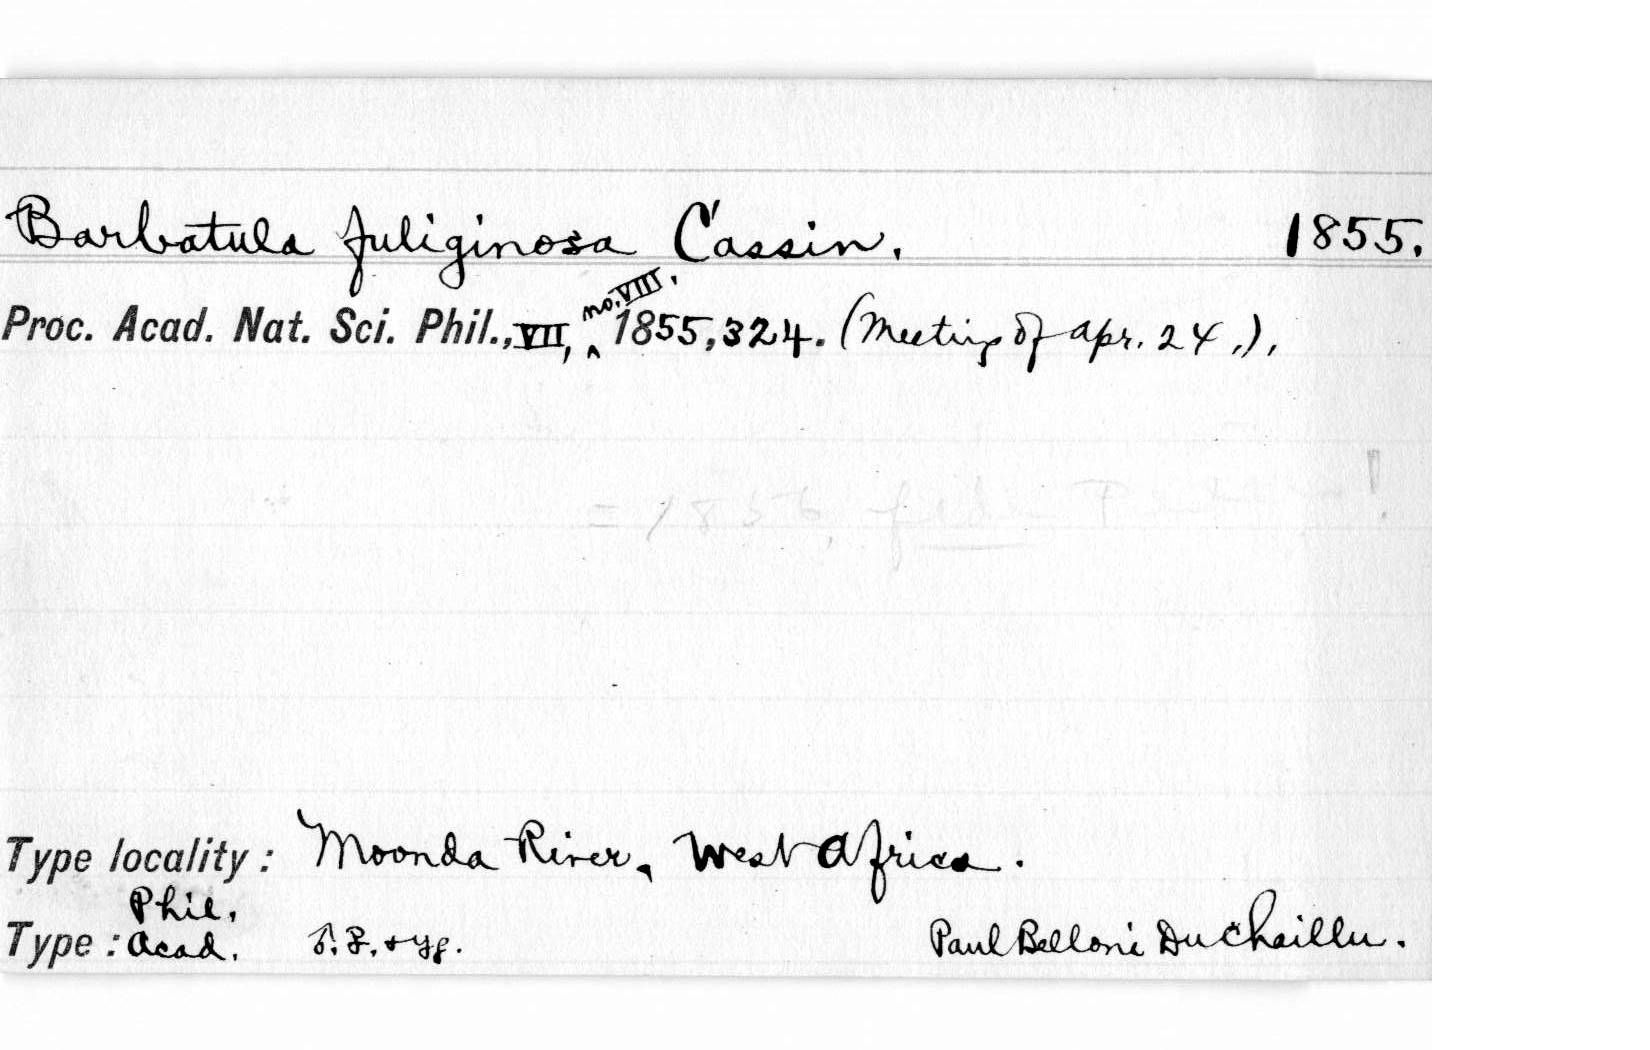 Barbatula fuliginosa Cassin. 1855.
Proc. Acad. Nat. Sci. Phil., VII, no. VIII. 1855, 324. (Meeting of Apr. 24,),
= 1856,
Type locality: Moonda River, West Africa.
Phil.
Type: Acad. + yg. Paul Belloni DuChaillu.